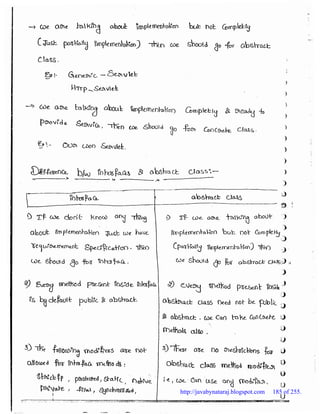 → we are talking about implementation but not completely
(Just partially implementation) then we should go for abstract
class.
Ex:- Generic - Servlet
Http - Servlet
→ we are talking about implementation completely & ready to
provide service, Then we should go from concrete class.
Ex:- Own own Servlet.
Difference b/w interfaces & abstract classes:-
interface
abstract class
1) If we don't know any thing
about implementation Just we have
requirement specification. Then
we should go for interface.
1) If we are talking about
implementation but not completely
(partially implementation) then
we should go for abstract class.
2) Every method present inside interface
is by default public & abstract.
2) every method present inside
abstract class need not be public
& abstract. we can take concrete
methods also.
3) The following modifiers are not
allowed for interface methods:
strictfp, protected, static, native
private, final, synchronized.
3) There are no restrictions for
abstract class method modifiers
i.e, we can use any modifiers.
http://javabynataraj.blogspot.com 185 of 255.